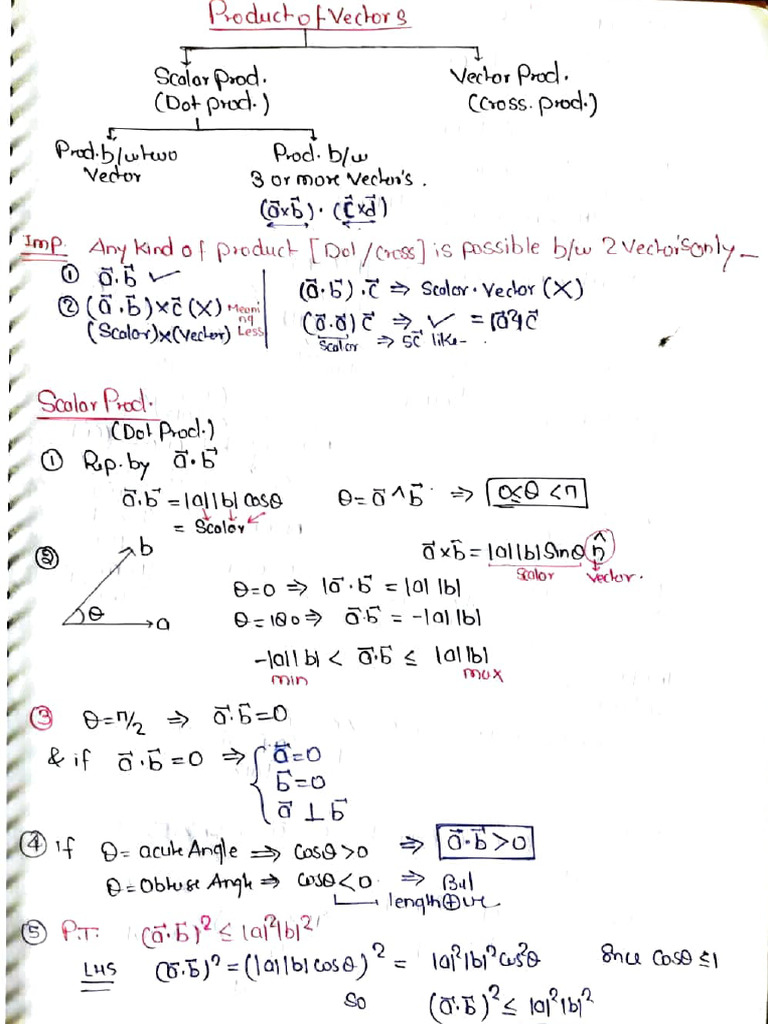 Product of Vectors
Scalar Prod. Vector Prod.
(Dot prod.) (Cross. prod.)
Prod. b/w two Prod. b/w
Vector 3 or more Vector's.
(a⃗×b⃗)·(c⃗×d⃗)
Imp. Any kind of product [Dot/Cross] is possible b/w 2 Vector's only –
① a⃗.b⃗ ✓ (a⃗.b⃗).c⃗ ⇒ Scalar·Vector (X)
② (a⃗.b⃗)×c⃗ (X) Meaning Less (a⃗.a⃗)c⃗ ⇒ ✓ = |a⃗|²c⃗
(Scalar)×(Vector) Scalar ⇒ Sc⃗ like–
Scalar Prod.
(Dot Prod.)
① Rep. by a⃗.b⃗
a⃗.b⃗ = |a||b| cosθ θ = a⃗ ^ b⃗ ⇒ 0≤θ<π
= Scalar
② b a⃗×b⃗ = |a||b| Sinθ n̂
Scalar Vector.
θ=0 ⇒ |a⃗.b⃗ = |a||b|
θ a θ=180 ⇒ a⃗.b⃗ = -|a||b|
-|a||b| < a⃗.b⃗ ≤ |a||b|
min max
③ θ=π/2 ⇒ a⃗.b⃗=0
& if a⃗.b⃗=0 ⇒ { a⃗=0
b⃗=0
a⃗ ⊥ b⃗
④ If θ= acute Angle ⇒ cosθ>0 ⇒ a⃗.b⃗>0
θ=Obtuse Angle ⇒ cosθ<0 ⇒ But
length ⊕ive
⑤ P.T. (a⃗.b⃗)² ≤ |a|²|b|²
LHS (a⃗.b⃗)² = (|a||b| cosθ)² = |a|²|b|²cos²θ Since cosθ ≤1
So (a⃗.b⃗)² ≤ |a|²|b|²